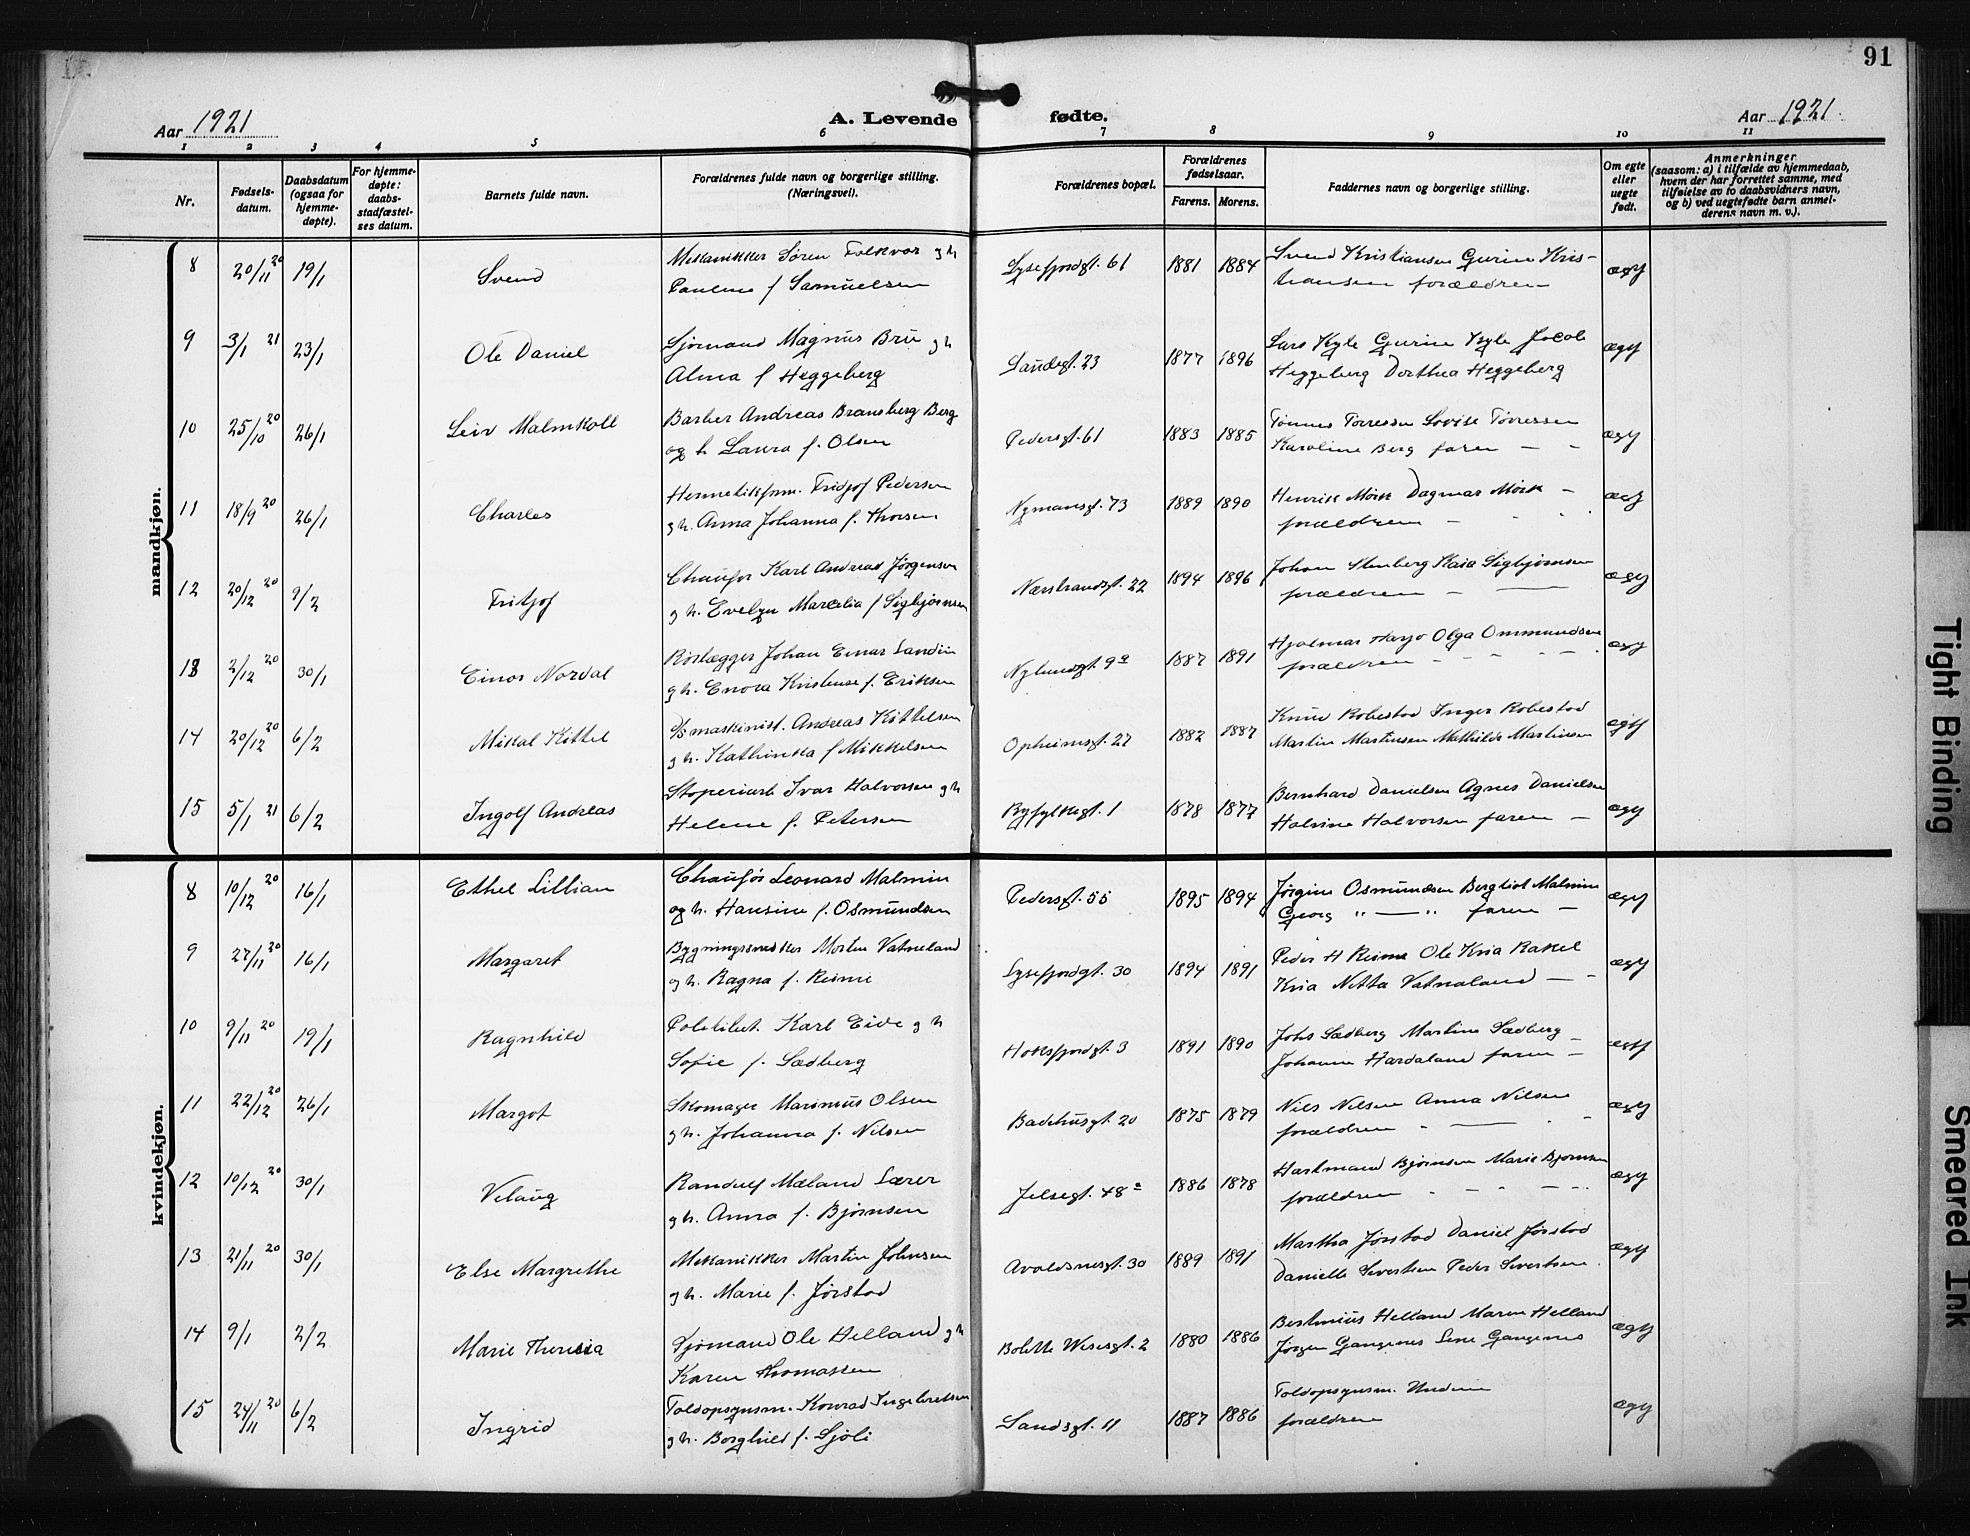 91
Aar 1921
A. Levende fødte.
Aar 1921.
1 2 3 4 5 6 7 8 9 10 11
Nr.
Fødsels-
datum.
Daabsdatum
(ogsaa for
hjemme-
døpte).
For hjemme-
døpte:
daabs-
stadfæstel-
ses datum.
Barnets fulde navn.
Forældrenes fulde navn og borgerlige stilling.
(Næringsvei).
Forældrenes bopæl.
Forældrenes
fødselsaar.
Farens. Morens.
Faddernes navn og borgerlige stilling.
Om egte
eller
uegte
født.
Anmerkninger
(saasom: a) i tilfælde av hjemmedaab,
hvem der har forrettet samme, med
tilføielse av to daabsvidners navn,
og b) ved uegtefødte barn anmel-
derens navn m. v.).
mandkjøn.
8 20/11 20 19/1 Svend Mekanikker Søren Folkvor g h
Pauline f Samuelsen Lysefjordgt. 61 1881 1884 Svend Kristiansen Gurine Kris-
tiansen forældren ægt
9 3/1 21 23/1 Ole Daniel Sjømand Magnus Bru g h
Alma f Heggeberg Sandsgt. 23 1877 1896 Lars Kyle Gurine Kyle Jacob
Heggeberg Dorthea Heggeberg ægt
10 25/10 20 26/1 Leiv Malmkoll Barber Andreas Bransberg Berg
og h Laura f. Olsen Pedersgt. 61 1883 1885 Tønnes Tørressen Lovise Tørressen
Karoline Berg faren — - ægt
11 18/9 20 26/1 Charles Hermetikfm. Fridjof Pedersen
g h. Anna Johanna f. Thorsen Nymansgt. 73 1889 1890 Henrik Mørk Dagmar Mørk -
forældren - ægt
12 20/12 20 9/2 Fritjof Chaufør Karl Andreas Jørgensen
g h. Evelyn Marcelia f Sigbjørnsen Nærstrandsgt. 22 1894 1896 Johan Stenberg Kaia Sigbjørnsen
forældren - — ægt
13 2/12 20 30/1 Einar Nordal Rørlægger Johan Einar Sandin
g h. Enora Kristense f. Eriksen Nylundsgt. 9a 1887 1891 Hjalmar Olga Ommundsen
forældren - - - - ægt
14 20/12 20 6/2 Mikal Kittel D/s maskinist. Andreas Kittelsen
g h. Kathinka f Mikkelsen Opheimsgt. 27 1882 1887 Knud Robestad Inger Robestad
Martin Martinsen Mathilde Martinsen ægt
15 5/1 21 6/2 Ingolf Andreas Støperiarb Ivar Halvorsen g h
Helene f. Petersen Ryfylkegt. 1 1878 1877 Bernhard Danielsen Agnes Danielsen
Halvine Halvorsen faren — ægt
kvindekjøn.
8 10/12 20 16/1 Ethel Lillian Chaufør Leonard Malmin
og h. Hansine f. Osmundsen Pedersgt. 55 1895 1894 Jørgine Osmundsen Bergliot Malmin
Georg " — " faren — ægt
9 27/11 20 16/1 Margaret Bygningssnekker Morten Vatneland
g h. Ragna f. Reime Lysefjordgt. 30 1894 1891 Peder H Reime Ole Kria Rakel
Kria Netta Vatnaland — - ægt
10 9/11 20 19/1 Ragnhild Politibet. Karl Eide g h
Sofie f. Sædberg Høksfjordgt. 3 1891 1890 Johs Sædberg Martine Sædberg
Johanne Hardaland faren — ægt
11 22/12 20 26/1 Margot Skomager Marinius Olsen
g h. Johanna f. Nilsen Badehusgt. 20 1875 1879 Nils Nilsen Anna Nilsen
forældren - — ægt
12 10/12 20 30/1 Velaug Randulf Mæland Lærer
g h. Anna f. Bjørnsen Jelsegt. 48a 1886 1878 Hartmand Bjørnsen Marie Bjørnsen
forældren - - - - ægt
13 21/11 20 30/1 Else Margrethe Mekanikker Martin Johnsen
g h. Marie f. Jørstad Avaldsnesgt. 30 1889 1891 Martha Jørstad Daniel Jørstad
Danielle Sivertsen Peder Sivertsen. ægt
14 9/1 2/2 Marie Theresia Sjømand Ole Helland g h
Karen Thomassen Bolette Wiesesgt. 2 1880 1886 Bertinius Helland Maren Helland
Jørgen Gangenes Sine Gangenes ægt
15 24/11 20 6/2 Ingrid Toldopsynsm. Konrad Ingebretsen
g h. Borghild f. Sjøli Sandsgt. 11 1887 1886 Toldopsynsm.
forældren ægt
Tight Binding
Smeared Ink